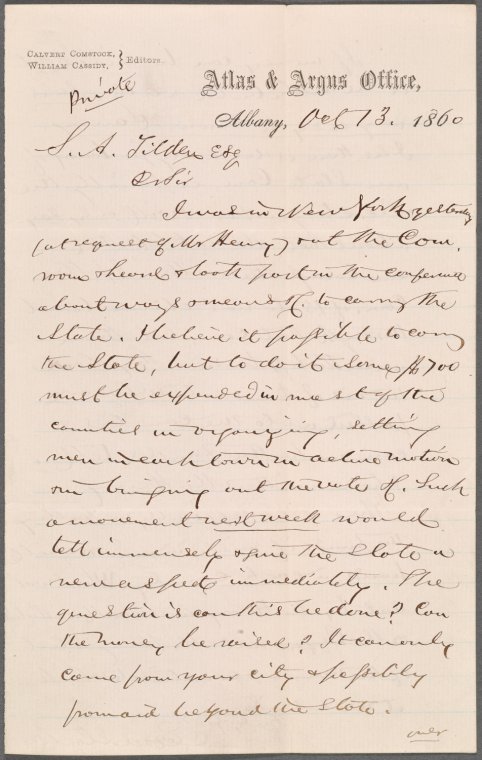 CALVERT COMSTOCK, } Editors.
WILLIAM CASSIDY,
Private
Atlas & Argus Office,
Albany, Oct 13. 1860
S. A. Tilden Esq
D Sir
I was in New York yesterday
(at request of Mr Henry) & at the Com.
room & heard & took part in the conference
about ways & means &c. to carry the
State. I believe it possible to carry
the State, but to do it some $700
must be expended in most of the
counties in organizing, setting
men in each town in active motion
& in bringing out the vote &c. Such
a movement next week would
tell immensely & give the State a
new aspect immediately. The
question is can this be done? Can
the money be raised? It can only
come from your city & possibly
from aid beyond the State.
over